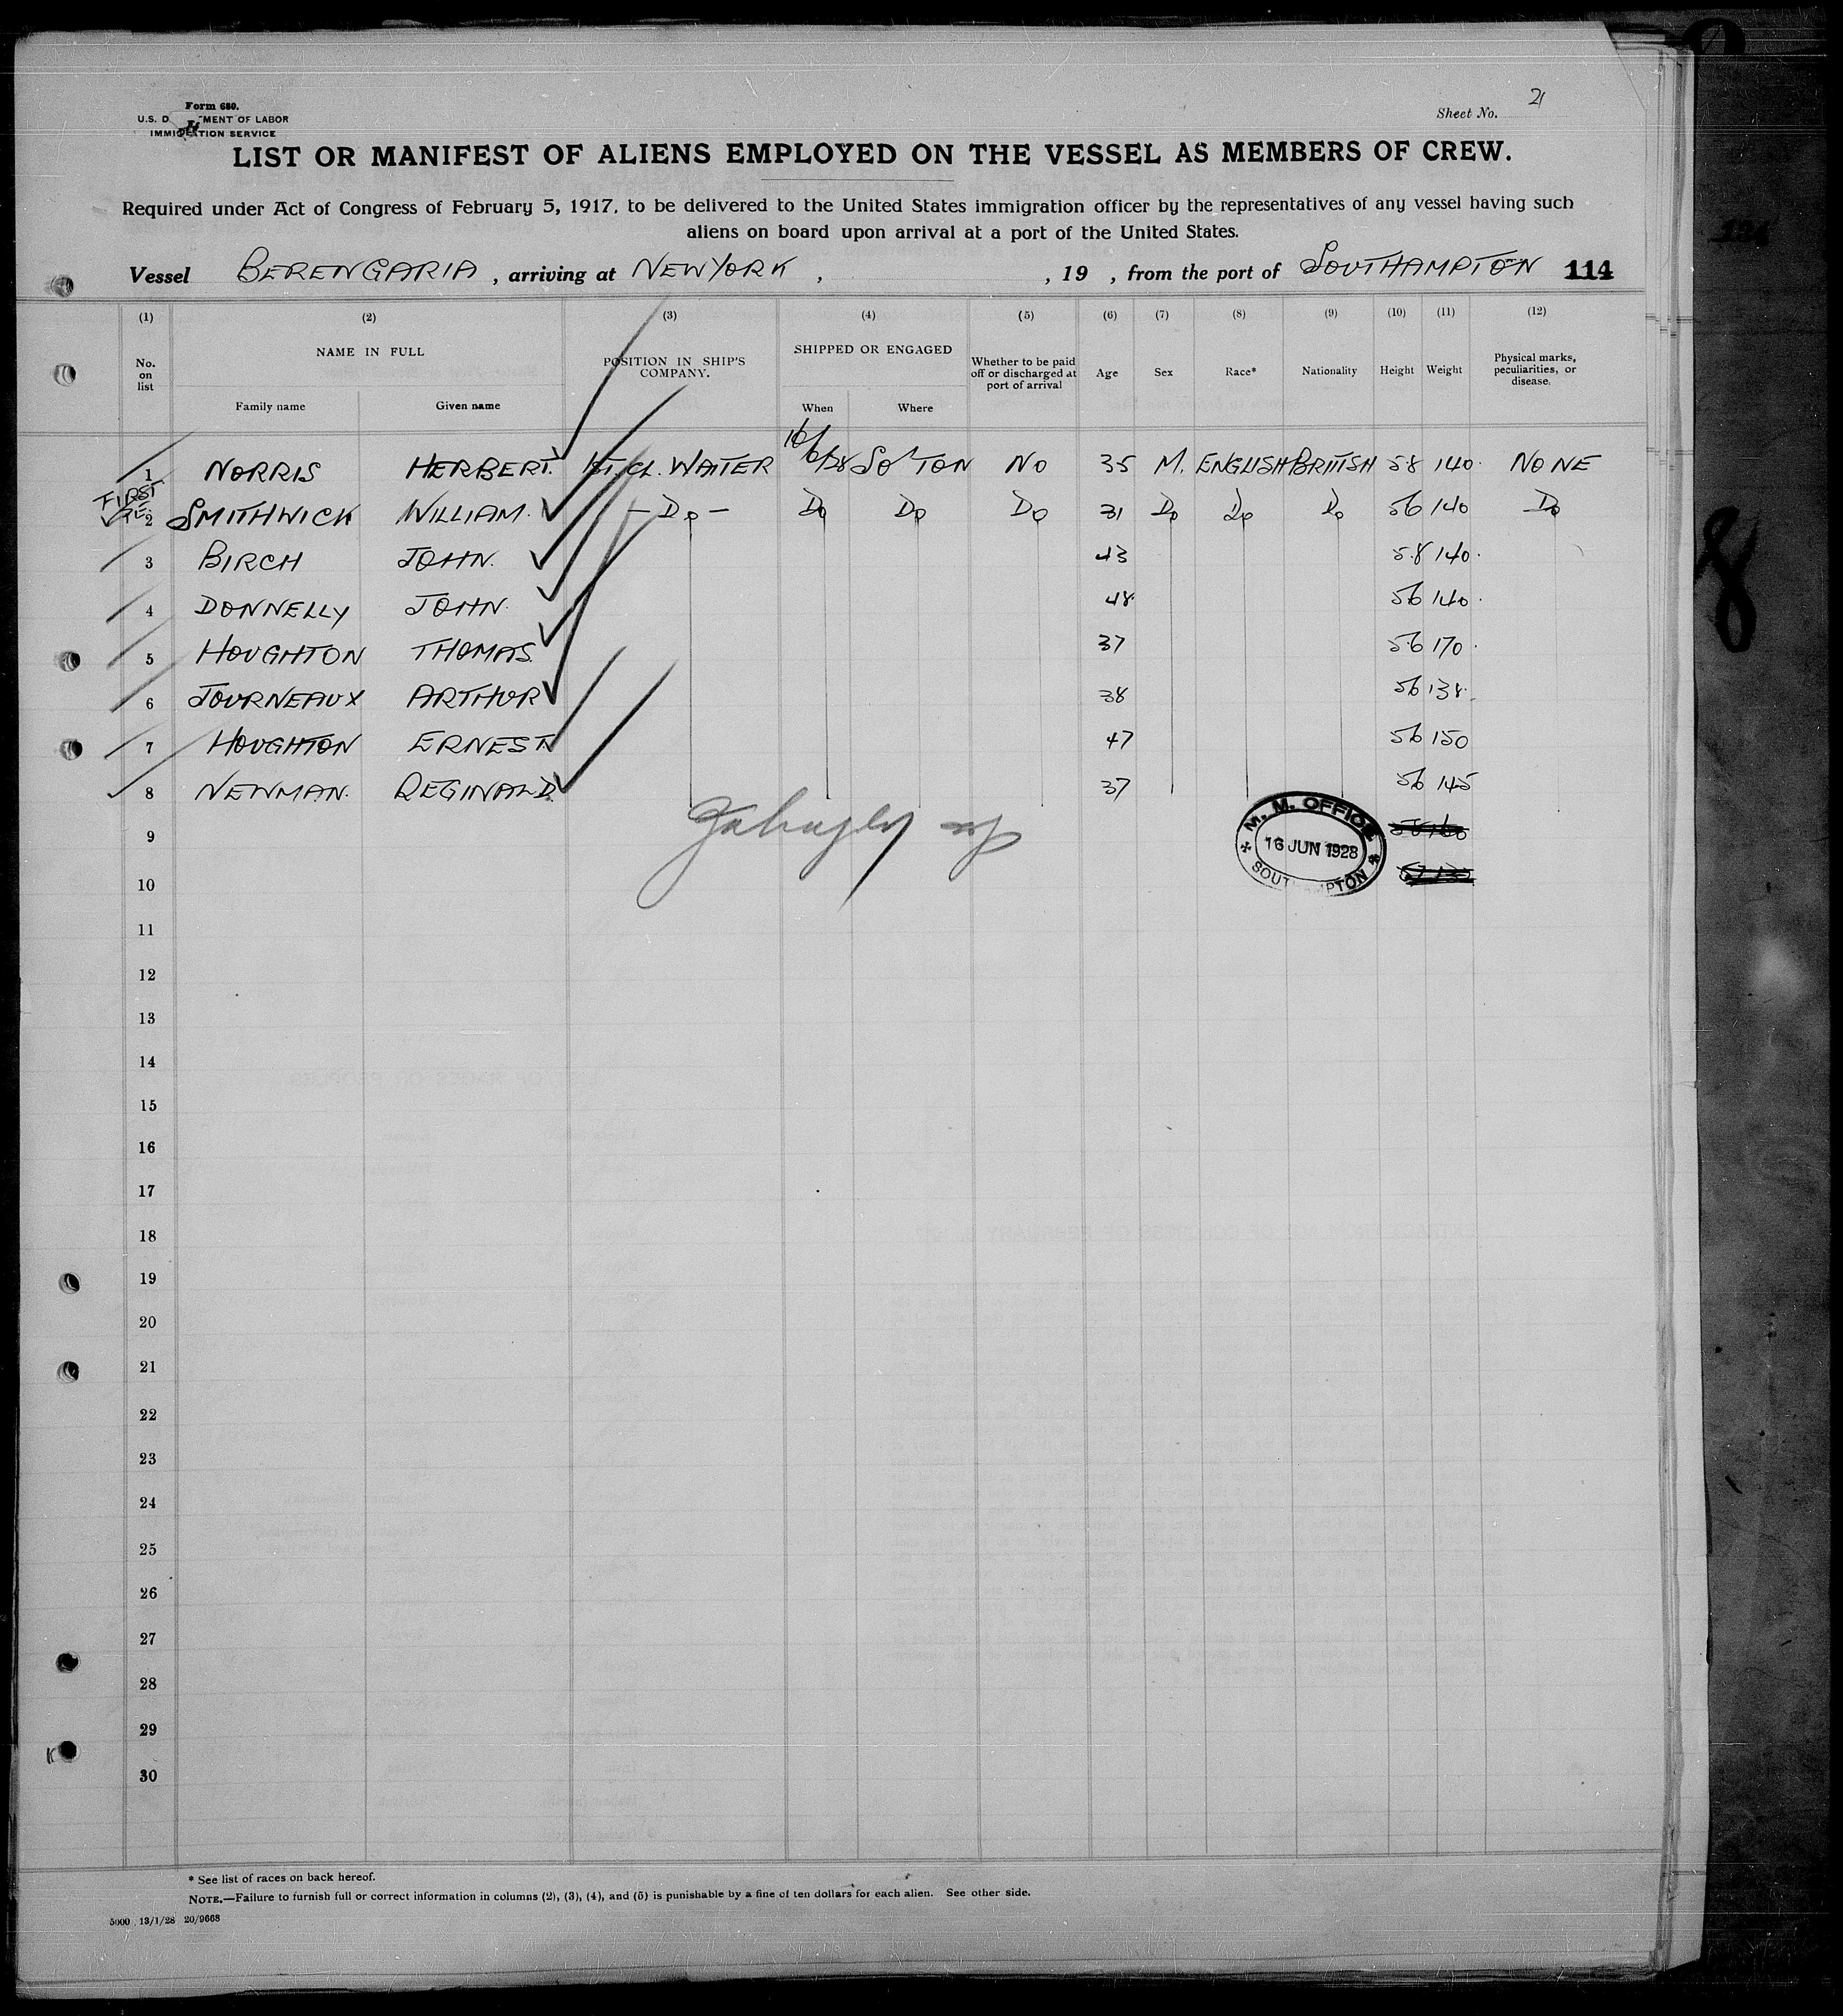 Form 680.
U.S. D MENT OF LABOR
IMMIGRATION SERVICE
Sheet No. 21
LIST OR MANIFEST OF ALIENS EMPLOYED ON THE VESSEL AS MEMBERS OF CREW.
Required under Act of Congress of February 5, 1917, to be delivered to the United States immigration officer by the representatives of any vessel having such
aliens on board upon arrival at a port of the United States.
Vessel BERENGARIA, arriving at NEW YORK, , 19 , from the port of SOUTHAMPTON 114
(1) (2) (3) (4) (5) (6) (7) (8) (9) (10) (11) (12)
No. on list NAME IN FULL POSITION IN SHIP'S COMPANY. SHIPPED OR ENGAGED Whether to be paid off or discharged at port of arrival Age Sex Race* Nationality Height Weight Physical marks, peculiarities, or disease.
Family name Given name When Where
1 NORRIS HERBERT. 1ST. CL. WAITER 16/6/28 SO'TON NO 35 M. ENGLISH BRITISH 58 140 NONE
FIRST
2 SMITHWICK WILLIAM. - Do - Do Do Do 31 Do Do Do 56 140 Do
3 BIRCH JOHN. 43 58 140.
4 DONNELLY JOHN. 48 56 140.
5 HOUGHTON THOMAS. 37 56 170.
6 JOURNEAUX ARTHUR 38 56 138.
7 HOUGHTON ERNEST. 47 56 150
8 NEWMAN. REGINALD. 37 56 145
9
10
M. M. OFFICE
16 JUN 1928
SOUTHAMPTON
11
12
13
14
15
16
17
18
19
20
21
22
23
24
25
26
27
28
29
30
* See list of races on back hereof.
NOTE.—Failure to furnish full or correct information in columns (2), (3), (4), and (5) is punishable by a fine of ten dollars for each alien. See other side.
5000 13/1/28 20/9668
8